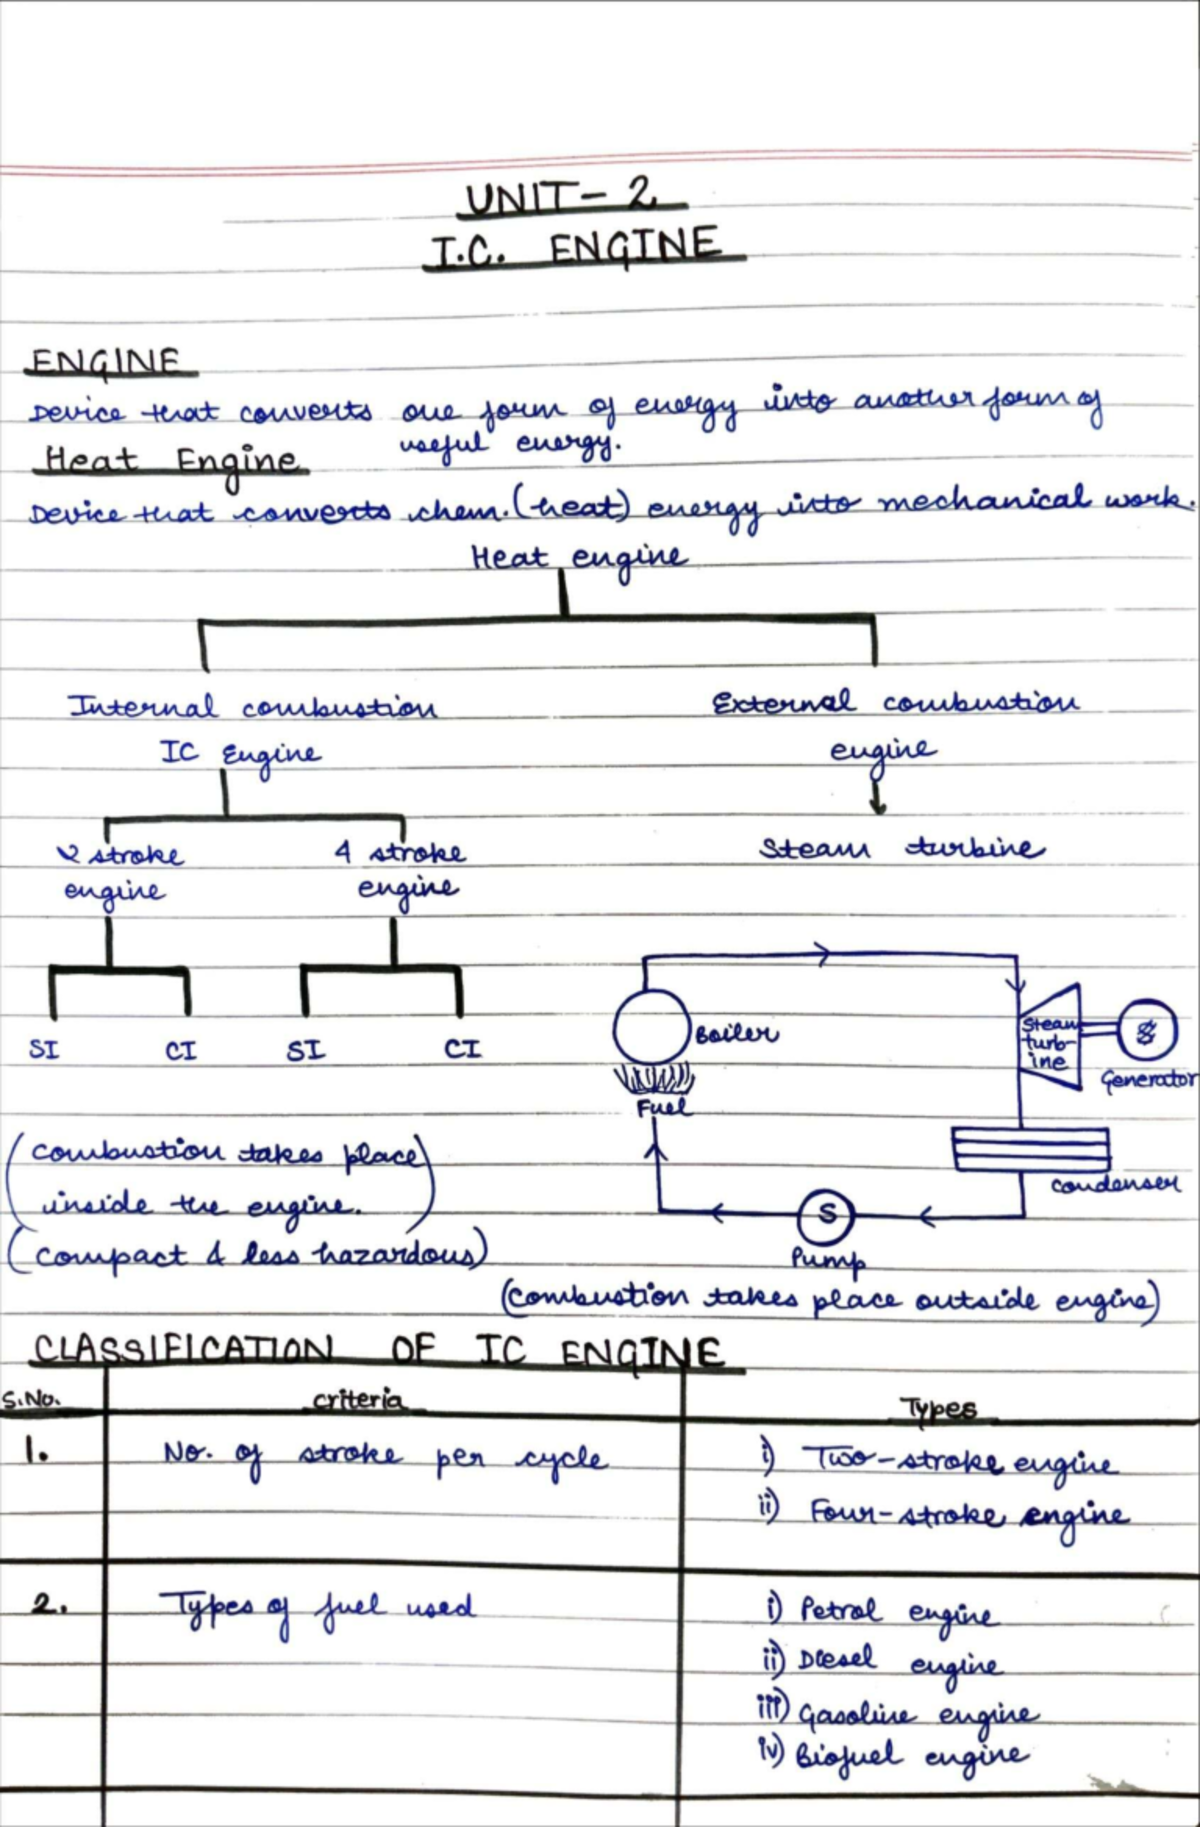 UNIT-2
I.C. ENGINE
ENGINE
Device that converts one form of energy into another form of
useful energy.
Heat Engine
Device that converts chem. (heat) energy into mechanical work.
Heat engine
Internal combustion
IC Engine
External combustion
engine
2 stroke
engine
4 stroke
engine
Steam turbine
SI CI SI CI
Boiler
Fuel
Steam
turb-
ine
Generator
condenser
S
Pump
(combustion takes place
inside the engine.)
(compact & less hazardous)
(combustion takes place outside engine)
CLASSIFICATION OF IC ENGINE
S.No. criteria Types
1. No. of stroke per cycle i) Two-stroke engine
ii) Four-stroke engine
2. Types of fuel used i) Petrol engine
ii) Diesel engine
iii) Gasoline engine
iv) Biofuel engine